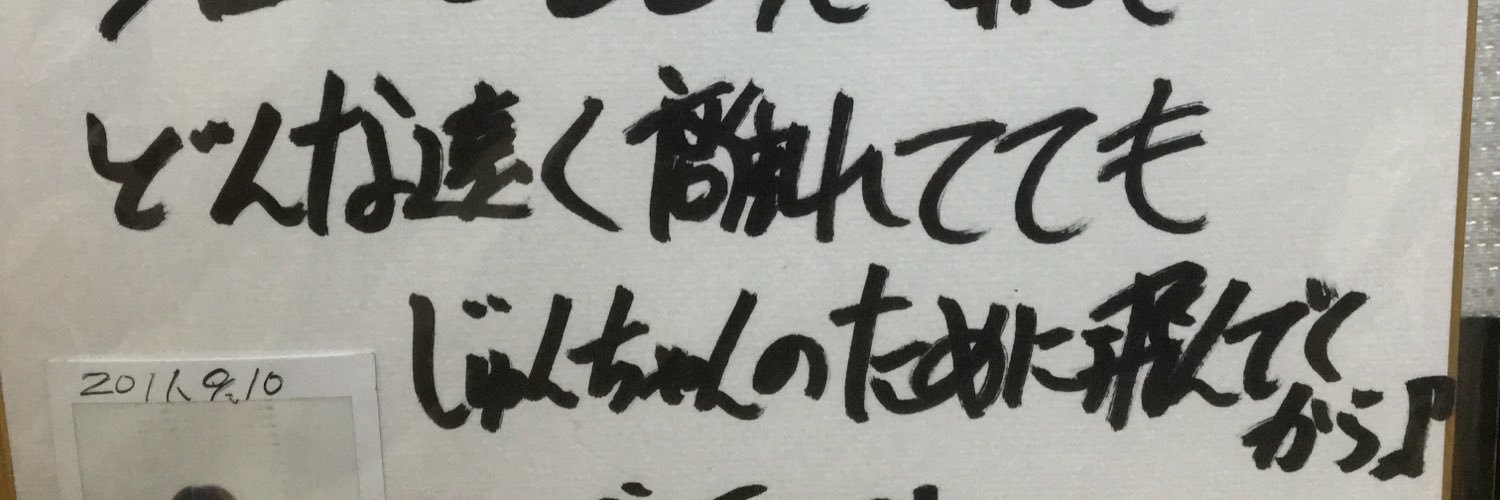 どんな遠く離れてても
じゅんちゃんのために飛んでく
から♪
2011、9、10